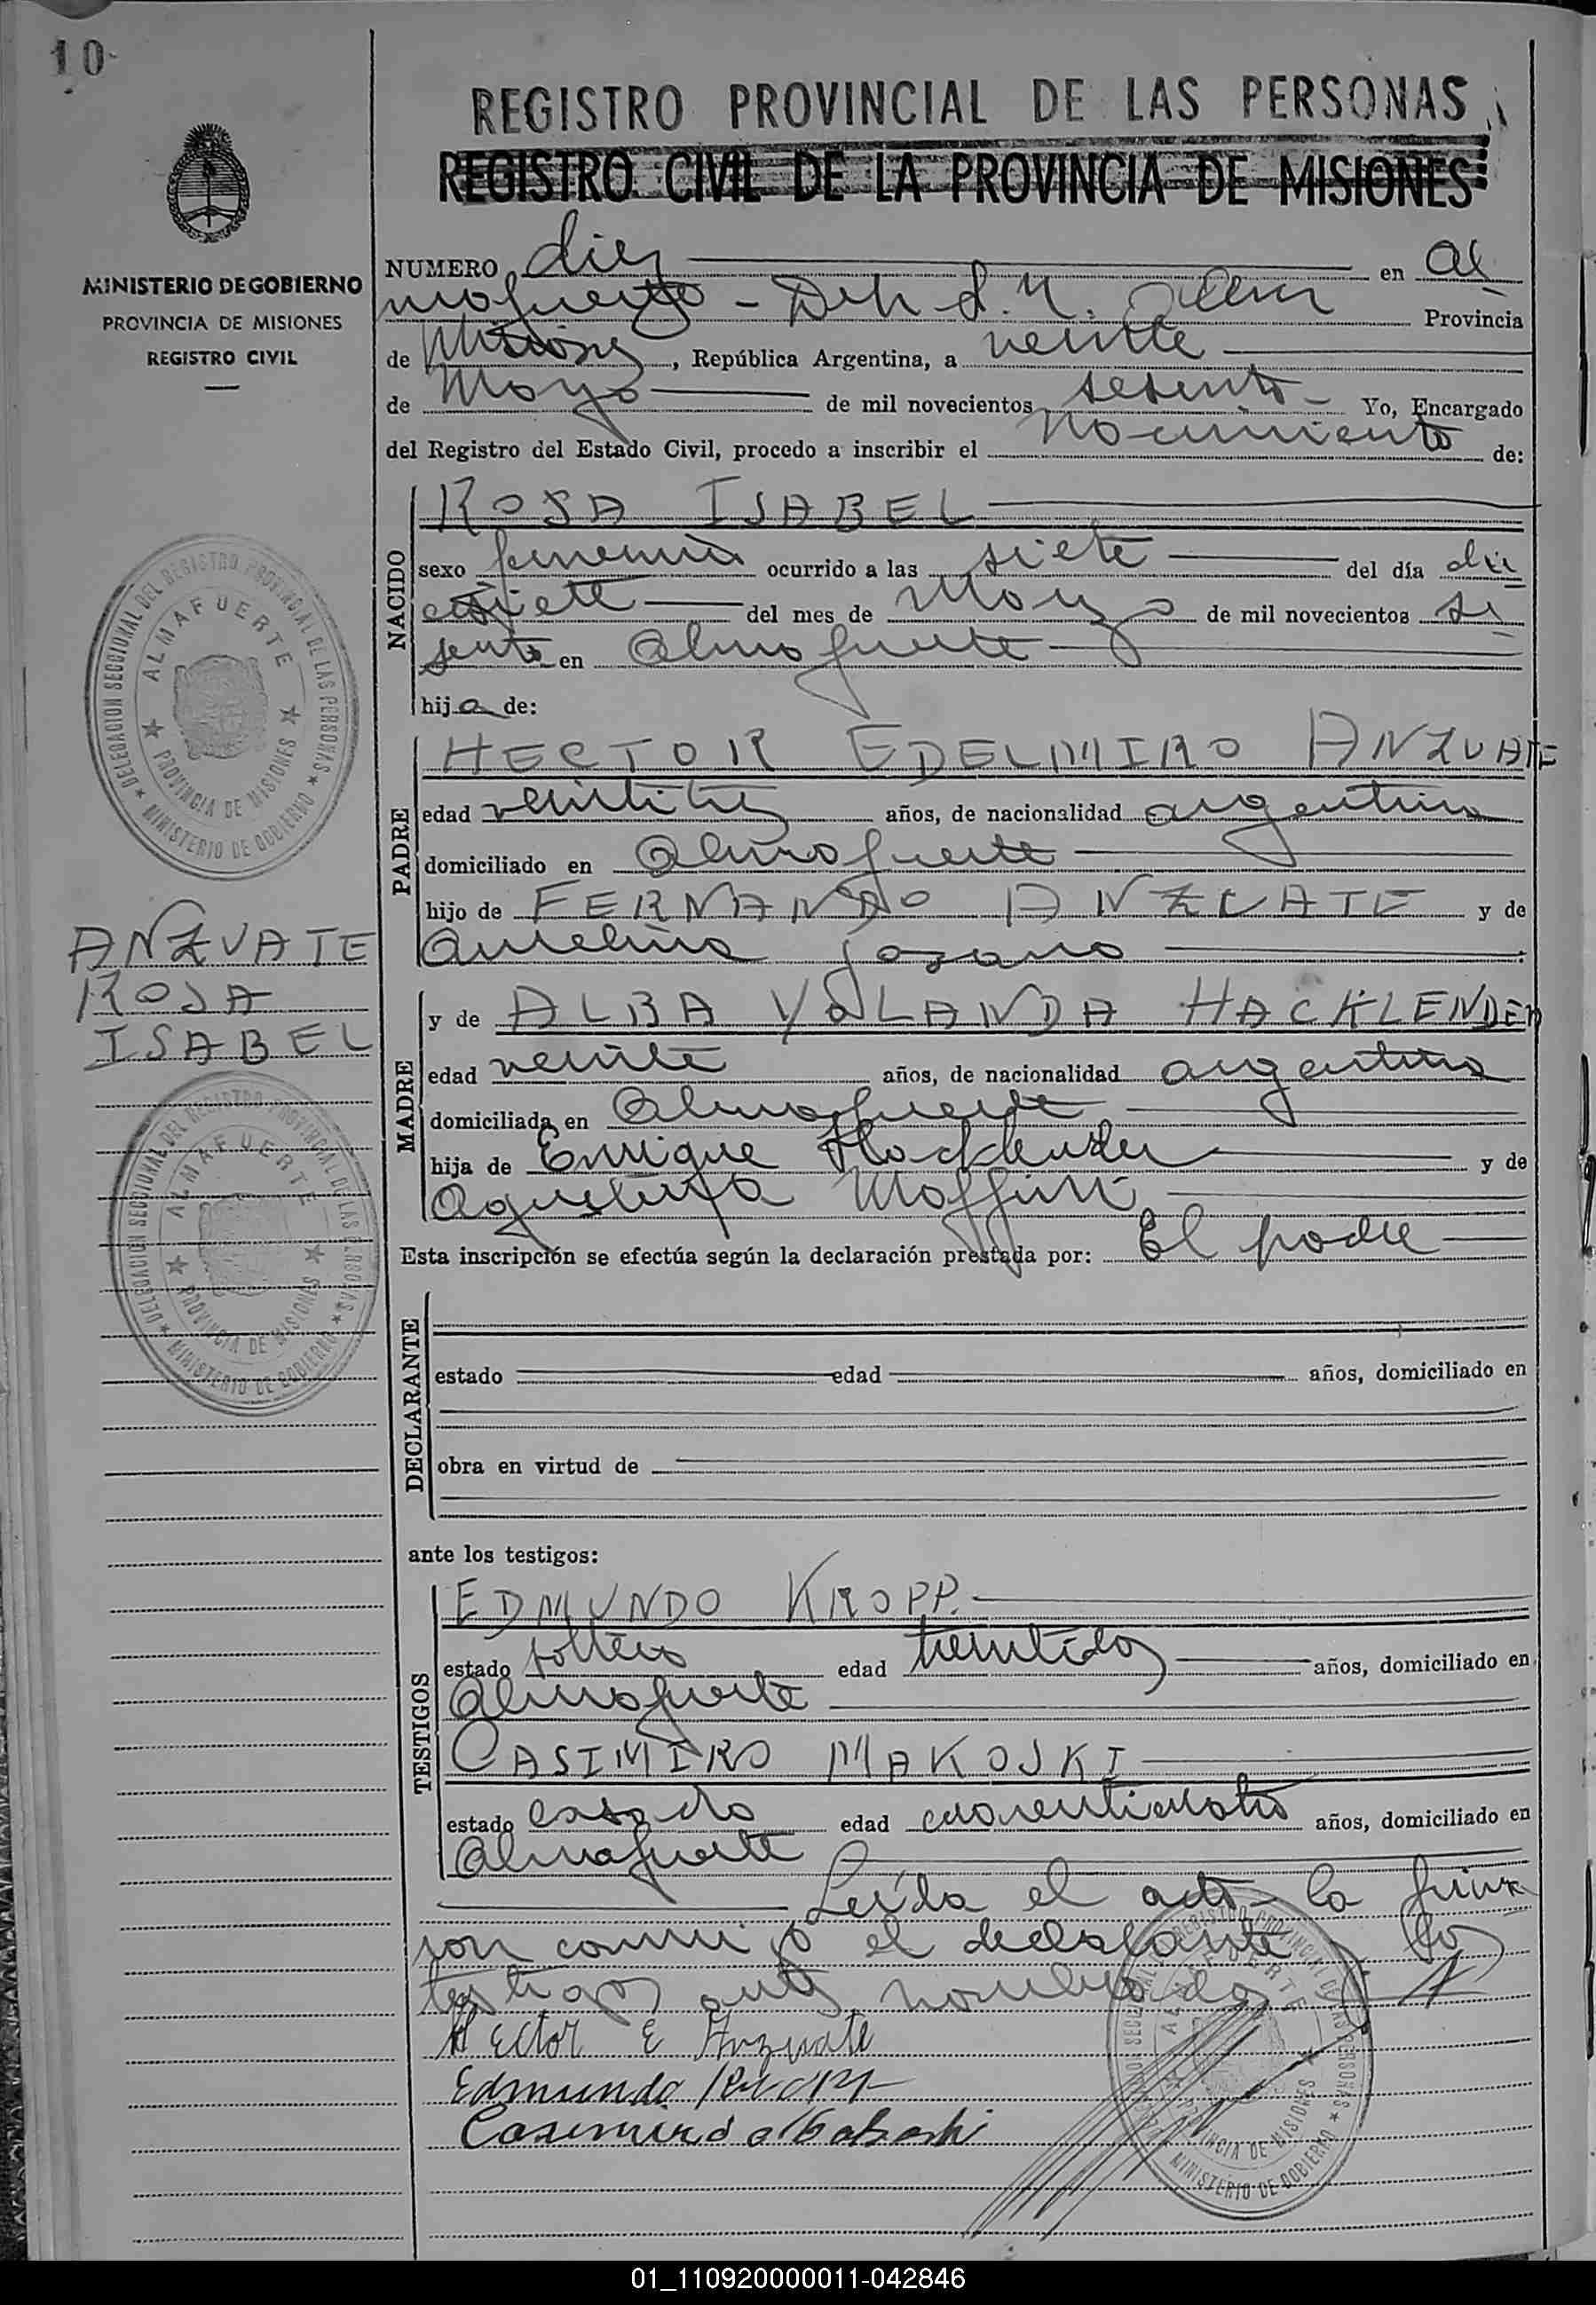 10
REGISTRO PROVINCIAL DE LAS PERSONAS
REGISTRO CIVIL DE LA PROVINCIA DE MISIONES
MINISTERIO DE GOBIERNO
PROVINCIA DE MISIONES
REGISTRO CIVIL
NUMERO diez en Al
mafuerte - Dep. L. N. Alem Provincia
de Misiones, República Argentina, a veinte
de Mayo de mil novecientos sesenta Yo, Encargado
del Registro del Estado Civil, procedo a inscribir el nacimiento de:
NACIDO
ROSA ISABEL
sexo femenino ocurrido a las siete del día diez
del mes de de mil novecientos se
senta en Almafuerte
hija de:
PADRE
HECTOR EDELMIRO ANZUATE
edad veintitres años, de nacionalidad argentina
domiciliado en Almafuerte
hijo de FERNANDO ANZUATE y de
ANZUATE
ROSA
ISABEL
MADRE
y de ALBA YOLANDA HACKLENDER
edad veinte años, de nacionalidad argentina
domiciliada en Almafuerte
hija de Enrique Hacklender y de
Esta inscripción se efectúa según la declaración prestada por: El padre
DECLARANTE
estado edad años, domiciliado en
obra en virtud de
ante los testigos:
TESTIGOS
EDMUNDO KROPP.
estado soltero edad treintidos años, domiciliado en
Almafuerte
CASIMIRO MAKOSKI
estado casado edad cuarenticuatro años, domiciliado en
Almafuerte
Leída el acta la firma
ron conmigo el declarante y los
testigos antes nombrados
Hector E Anzuate
Edmundo Kropp
DELEGACION SECCIONAL DEL REGISTRO PROVINCIAL DE LAS PERSONAS ★ MINISTERIO DE GOBIERNO ★
ALMAFUERTE ★ PROVINCIA DE MISIONES ★
DELEGACION SECCIONAL DEL REGISTRO PROVINCIAL DE LAS PERSONAS ★ MINISTERIO DE GOBIERNO ★
ALMAFUERTE ★ PROVINCIA DE MISIONES ★
01_110920000011-042846